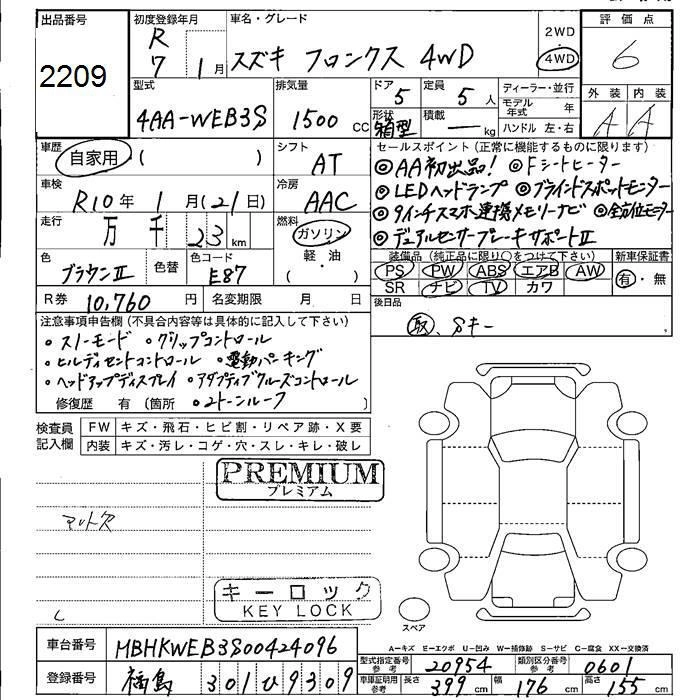 出品番号
2209
初度登録年月
R
7 1月
車名・グレード
スズキ フロンクス 4WD
2WD
4WD
評価点
6
型式
4AA-WEB3S
排気量
1500 CC
ドア
5
定員
5 人
形状
箱型
積載
— kg
ディーラー・並行
モデル年式 年
ハンドル 左・右
外装 内装
A A
車歴
自家用 ( )
シフト
AT
車検
R10年 1月(21日)
冷房
AAC
走行
万 千 23 km
燃料
ガソリン
軽・油
( ・ )
色
ブラウンⅡ
色替
色コード
E87
R券 10,760 円
名変期限 月 日
セールスポイント (正常に機能するものに限ります)
◎AA初出品! ◎Fシートヒーター
◎LEDヘッドランプ ◎ブラインドスポットモニター
◎9インチスマホ連携メモリーナビ ◎全方位モニター
◎デュアルセンサーブレーキサポートⅡ
装備品 (純正品に限り〇をつけて下さい)
PS PW ABS エアB AW
SR ナビ TV カワ
新車保証書
有・無
後日品
取、Sキー
注意事項申告欄 (不具合内容等は具体的に記入して下さい)
・スノーモード ・グリップコントロール
・ヒルディセントコントロール ・電動パーキング
・ヘッドアップディスプレイ ・アダプティブクルーズコントロール
修復歴 有 (箇所 ・2トーンルーフ )
検査員
記入欄
FW キズ・飛石・ヒビ割・リペア跡・X要
内装 キズ・汚レ・コゲ・穴・スレ・キレ・破レ
PREMIUM
プレミアム
マット欠
キーロック
KEY LOCK
スペア
A-キズ E-エクボ U-凹み W-補修跡 S-サビ C-腐食 XX-交換済
車台番号 MBHKWEB3S00424096
型式指定番号 参考 20954 類別区分番号 参考 0601
登録番号 福島 301 ひ 9309
車庫証明用 参考 長さ 399 cm 幅 176 cm 高さ 155 cm